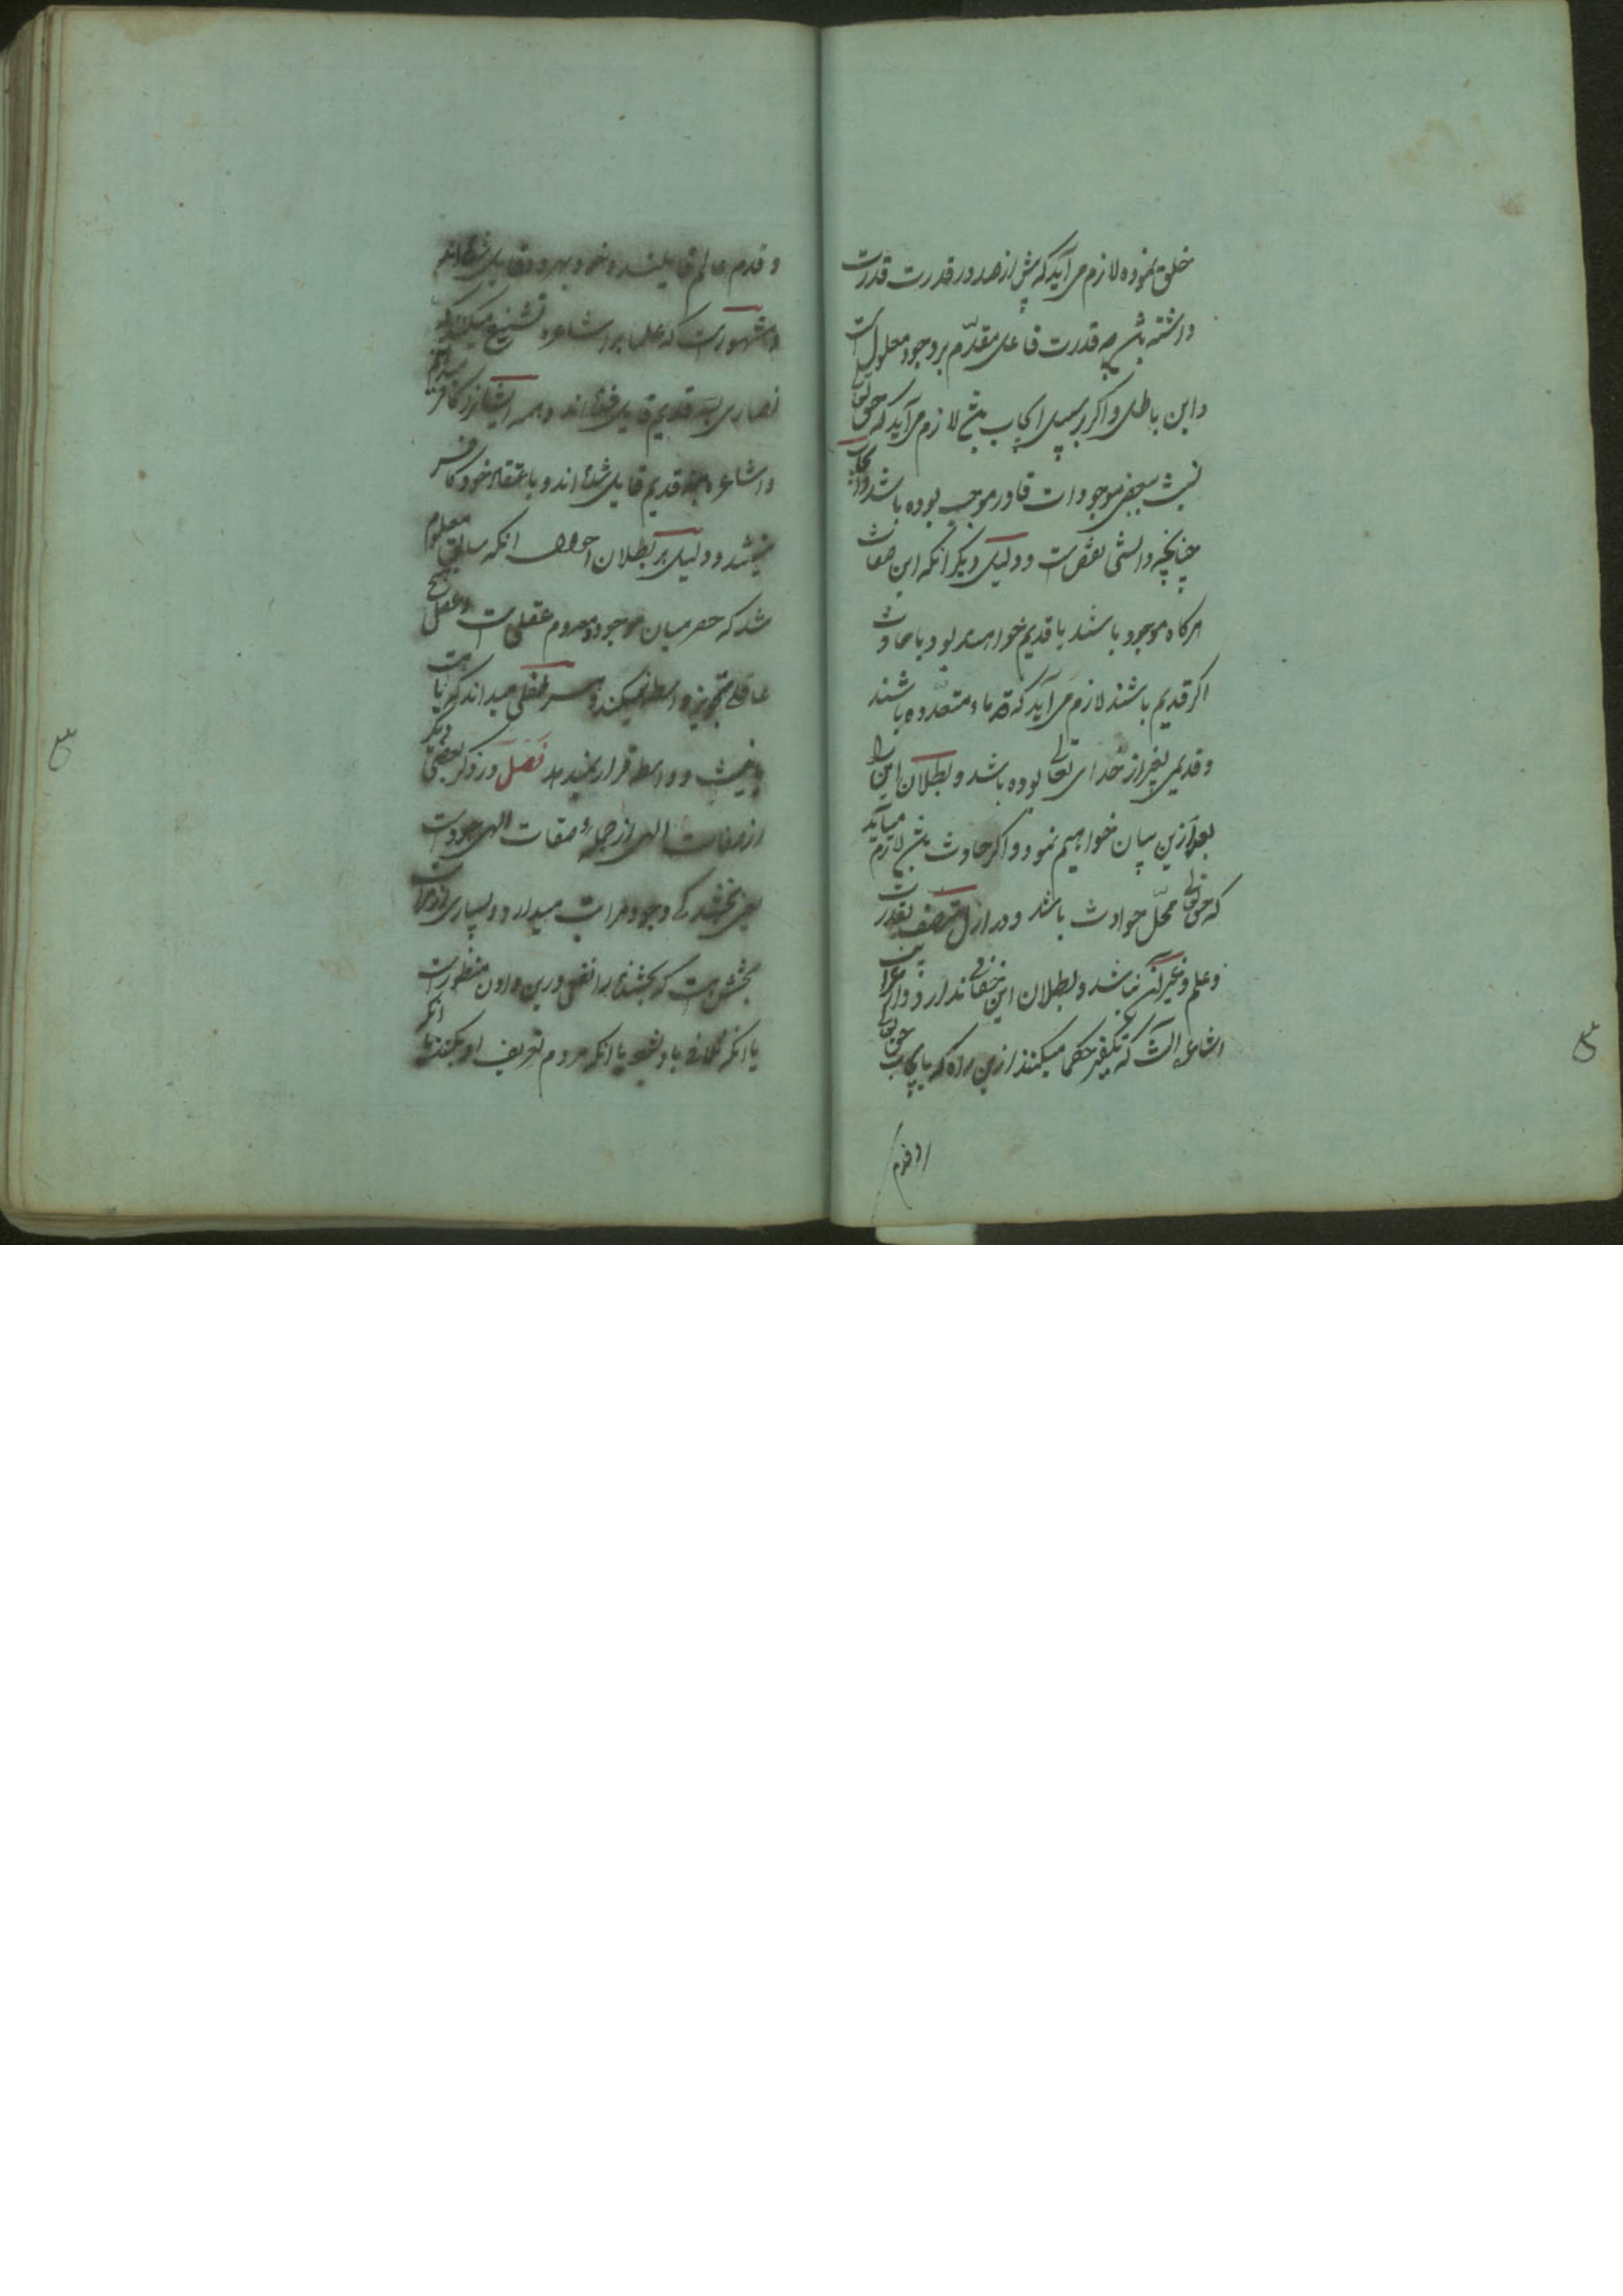 خلق نموده لازم می آید که پیش از صدور قدرت قدرت
داشته باشد چه قدرت فاعل مقدّم بر وجود معلول است
و این باطل و اگر بر سبیل ایجاب باشد لازم می آید که حق تعالی
نسبت ببعضی موجودات قادر موجب بوده باشد
چنانچه دانستی نقص است و دلیل دیگر آنکه این صفات
هرگاه موجود باشند یا قدیم خواهند بود یا حادث
اگر قدیم باشند لازم می آید که قدماء متعدّده باشند
و قدیمی بغیر از خدای تعالی بوده باشد و بطلان این را
بعد ازین بیان خواهیم نمود و اگر حادث باشند لازم میآید
که حق تعالی محلّ حوادث باشد و در ازل متّصف بقدرت
و علم و غیر آن نباشد و بطلان این خفائی ندارد و از غرایب
اشاعره آنست که تکفیر حکما میکنند ازین راه که بایجاب حق تعالی
و قدم
و قدم عالم قایلند و خود بهر دو قایل شده اند
و مشهور است که علما بر اشاعره تشنیع میکنند که
نصاری بسه قدیم قایل شده اند و همه ایشانرا کافر میدانیم
و اشاعره بنه قدیم قایل شده اند و باعتقاد خود کافر
نیستند و دلیل بر بطلان احوال آنکه سابق معلوم
شد که حصر میان موجود و معدوم عقلی است و عقل هیچ
عاقلی تجویز واسطه نمیکند و هر طفلی میداند که یا هست
یا نیست و واسطه قرار نمیدهد فصل در ذکر بعضی دیگر
از صفات الهی از جملهٔ صفات الهی جود است
یعنی بخشندگی وجود مراتب میدارد و بسیاری از مراتب
بخشش هست که بخشنده را نفعی درین دادن منظور است
یا آنکه تلافی باو بشود یا آنکه مردم تعریف او بکنند یا آنکه